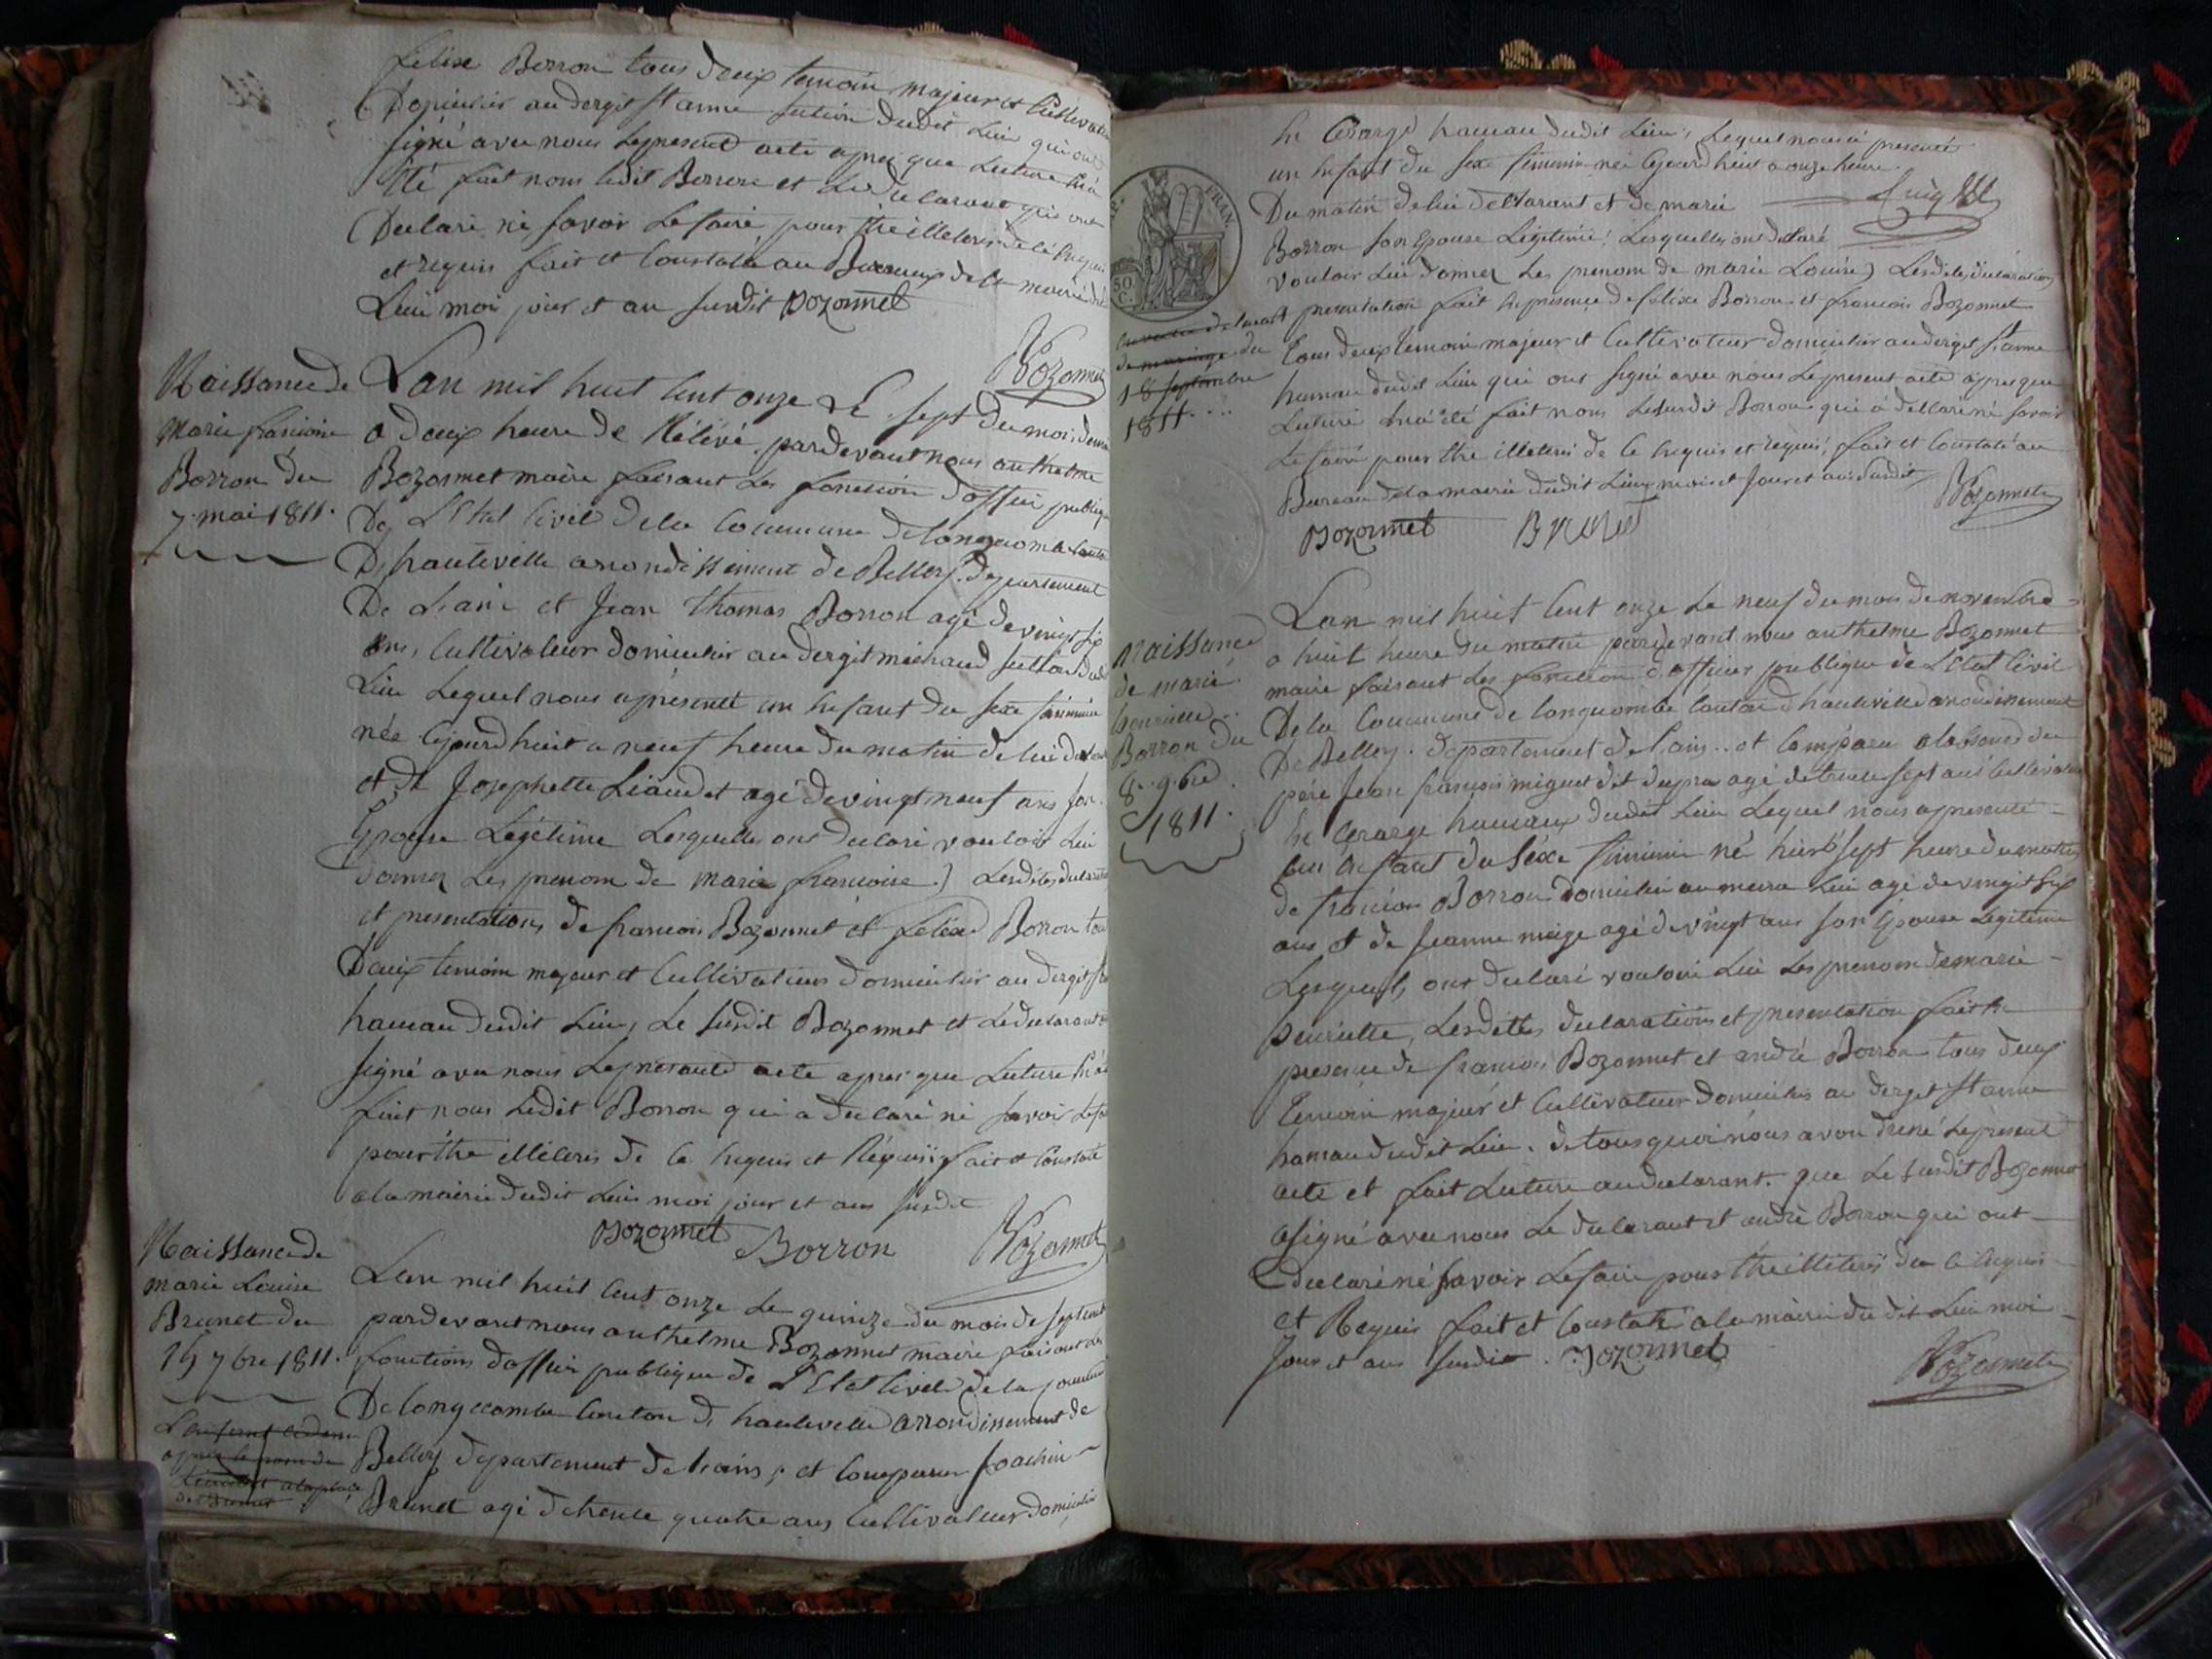 felixe Borron tous deux temoin majeur et Cultivateur
Domicilier au dergit St anne section dudit Lieu qui ont
signé avec nous le present acte apres que Lecture
été fait nous ledit Borron et le declarant qui ont
Declaré ne savoir le faire, pour
et requis fait et Constaté au Bureaux de la mairie
Lieu moi jour et an susdit Bozonnet
Bozonnet
Naissance de
marie francoise
Borron du
7 mai 1811.
Lan mil huit Cent onze Le sept du mois de mai
a deux heure de Rélévé pardevant nous anthelme
Bozonnet maire faisant les fonction d'officie publique
De L'Etat Civil de la Commune de longecombe Canton
D'hauteville arrondissement de Belley. departement
De Lain et Jean Thomas Borron agé de vingt six
ans, Cultivateur domicilier au dergit michaud section dudit
Lieu Lequel nous a présenté un Enfant du sexe feminin
née Cejourd'huit a neuf heure du matin de lui declarant
et de Josephette Liaudet agé de vingt neuf ans son
Epouse Légitime Lesquelles ont declaré vouloir Lui
donner Les prenom de marie francoise.) Lesdites declaration
et presentation, de francois Bozonnet et felixe Borron tous
Deux temoin majeur et Cultivateurs domicilier au dergit St
hameau dudit Lieu, Le susdit Bozonnet et le declarant
signé avec nous Le présent acte apres que Lecture
fait nous ledit Borron qui a declaré ne savoir Le faire
pour illeteris de Ce Enquis et Réquis, fait et Constaté
a la mairie dudit Lieu moi jour et an susdit
Bozonnet Borron Bozonnet
Naissance de
marie Louise
Brunet du
15 7bre 1811.
Lan mil huit Cent onze Le quinze du mois de septembre
pardevant nous anthelme Bozonnet maire faisant Les
fonctions d'officie publique de L'Etat Civil de la Commune
De longecombe Canton d'hauteville arrondissement de
Belley departement de Lains, et Comparu Joachin
Brunet agé de trente quatre ans Cultivateur domicilié
En Cerarge hameau dudit Lieu, Lequel nous à presenté
un Enfant du sexe feminin né Cejourd'huit a onze heure
Du matin de lui declarant et de marie
Borron son Epouse Légitime, Lesquelles ont declaré
vouloir Lui donner Les prenom de marie Louise) Lesdites déclaration
et presentation fait En presence de felixe Borron et francois Bozonnet
Tous deux temoin majeur et Cultivateur domicilier au dergit St anne
hameau dudit Lieu qui ont signé avec nous Le present acte apres que
Lecture été fait nous Lesusdit Borron qui à declaré né savoir
Le faire pour illeteris de Ce Enquis et requis, fait et Constaté au
Bureau de la mairie dudit Lieu mois et Jour et ans Susdit
Bozonnet Brunet Bozonnet
FRAN.
50
C.
de mariage du
18 septembre
1811....
Naissance
de marie
henriette
Borron du
8. 9bre
1811.
Lan mil huit Cent onze Le neuf du mois de novembre
a huit heure du matin pardevant nous anthelme Bozonnet
maire faisant Les fonction d'officier publique de L'Etat Civil
De la Commune de longuombe Canton d'hauteville arrondissement
De Belley. departement de Lain.. et Comparu a labsence du
père Jean francois miguet dit dupra agé de trente sept ans Cultivateur
En Cerarge hameaux dudit Lieu Lequel nous a presenté
un Enfant du Séxe feminin né hier a sept heure du matin
de francois Borron domicilié au meme Lieu agé de vingt six
ans et de Jeanne agé de vingt ans son Epouse Légitime
Lesquels, ont declaré vouloir Lui Les prenom de marie
henriette, Lesdittes declarations et presentation fait En
presence de francois Bozonnet et andré Borron tous deux
temoin majeur et Cultivateur domicilier au dergit St anne
hameau dudit Lieu. de tous quoi nous avon dressé Le present
acte et fait Lecture au declarant. que Le susdit Bozonnet
a signé avec nous Le declarant et andré Borron qui ont
declaré né savoir Le faire pour illeteris de Ce Enquis
et Requis fait et Constaté a la mairie du dit Lieu moi
Jour et ans susdit. Bozonnet
Bozonnet